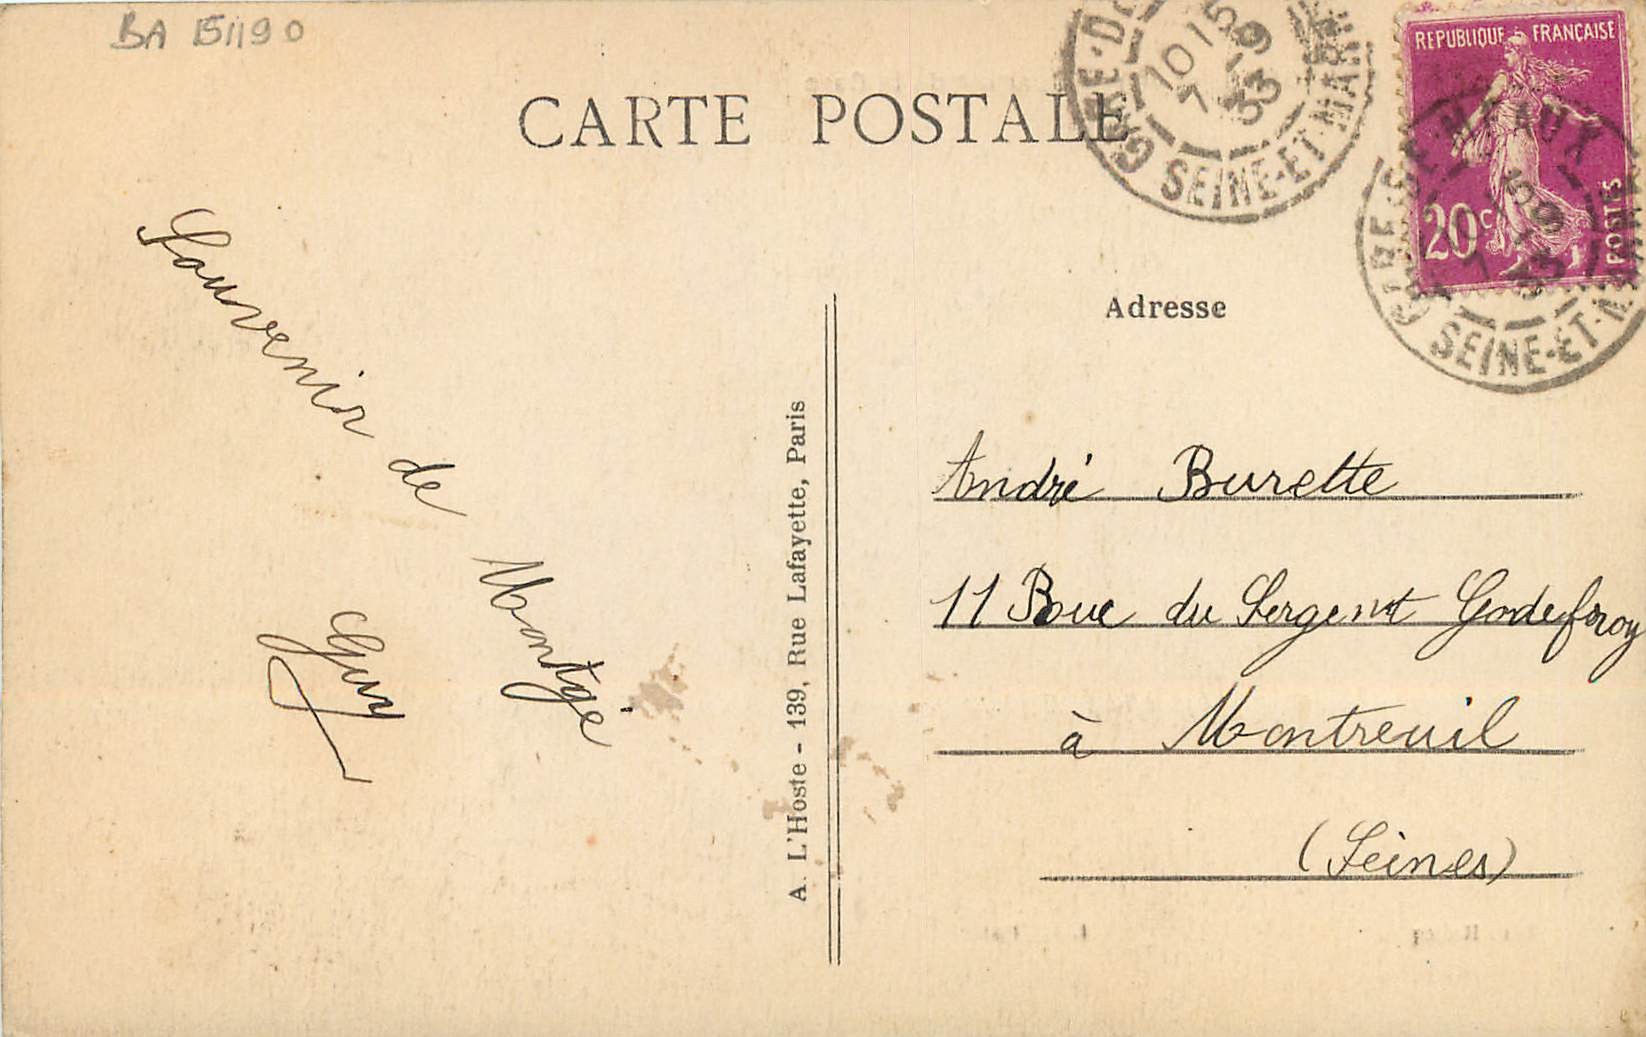 BA 151190
CARTE POSTALE
GARE DE
10 15
7 - 9
33
SEINE-ET-MAR
REPUBLIQUE FRANÇAISE
20c
POSTES
GARE DE MEAUX
10 15
7 - 9
33
SEINE-ET-MARNE
Souvenir de Montgé
Guy
A. L'Hoste - 139, Rue Lafayette, Paris
Adresse
André Burette
11 Boue du Sergent Godefroy
à Montreuil
(Seines)